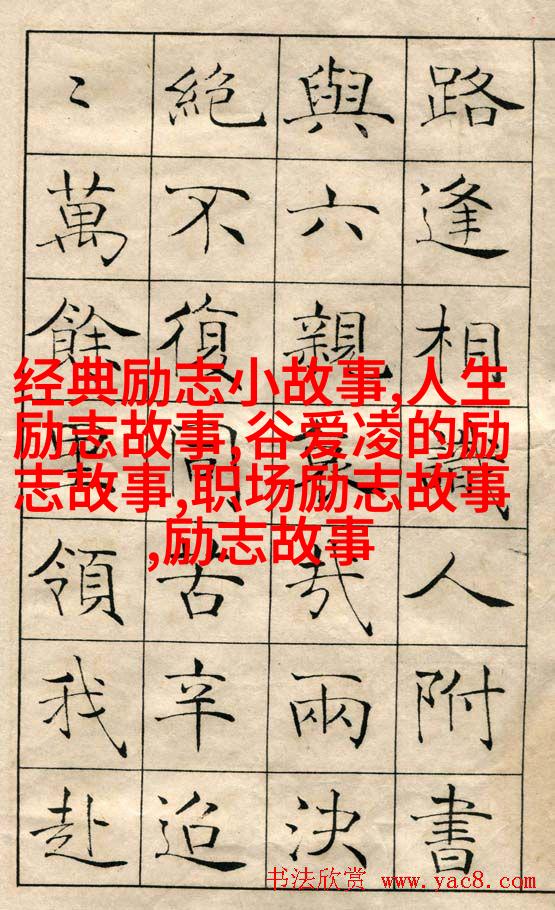 路逢相識人附書
與六親哀哉兩決
絕不復同苦辛迫
〻萬餘里領我赴
经典励志小故事,人生
励志故事,谷爱凌的励
志故事,职场励志故事
,励志故事
书法欣赏 www.yac8.com